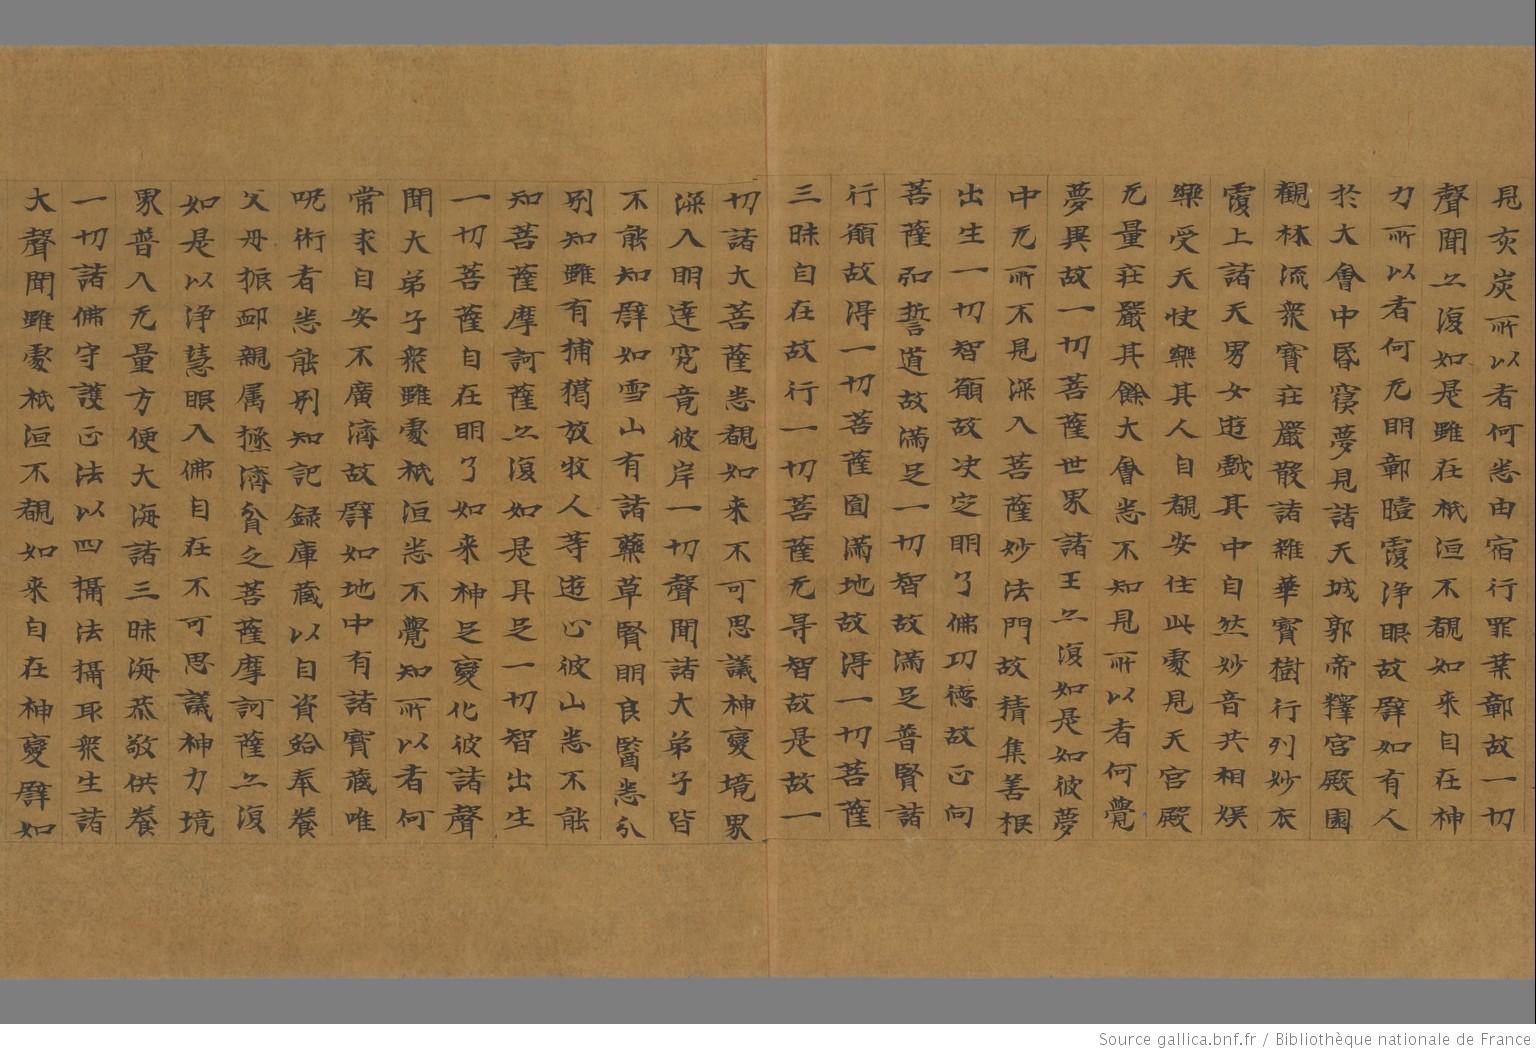 見灰炭所以者何悉由宿行罪業鄣故一切
聲聞亦復如是雖在祇洹不覩如来自在神
力所以者何无明鄣瞖覆浄眼故譬如有人
於大會中昏寢夢見諸天城郭帝釋宮殿園
觀林流衆寳莊嚴散諸雜華寳樹行列妙衣
覆上諸天男女遊戲其中自然妙音共相娱
樂受天快樂其人自覩安住此處見天宮殿
无量莊嚴其餘大會悉不知見所以者何覺
夢異故一切菩薩世界諸王亦復如是如彼夢
中无所不見深入菩薩妙法門故積集善根
出生一切智願故决定明了佛功德故正向
菩薩弘誓道故滿足一切智故滿足普賢諸
行願故得一切菩薩圓滿地故得一切菩薩
三昧自在故行一切菩薩无㝵智故是故一
切諸大菩薩悉覩如来不可思議神變境界
深入明達究竟彼岸一切聲聞諸大弟子皆
不能知譬如雪山有諸藥草賢明良醫悉分
别知雖有捕獵放牧人等遊心彼山悉不能
知菩薩摩訶薩亦復如是具足一切智出生
一切菩薩自在明了如来神足變化彼諸聲
聞大弟子衆雖處祇洹悉不覺知所以者何
常求自安不廣濟故譬如地中有諸寳藏唯
呪術者悉能别知記録庫藏以自資給奉養
父母振卹親属拯濟貧乏菩薩摩訶薩亦復
如是以浄慧眼入佛自在不可思議神力境
界普入无量方便大海諸三昧海恭敬供養
一切諸佛守護正法以四攝法攝取衆生諸
大聲聞雖處祇洹不覩如来自在神變譬如
Source gallica.bnf.fr / Bibliothèque nationale de France